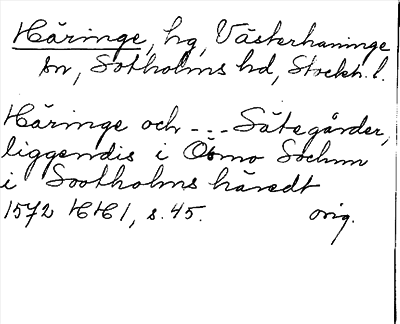 Häringe, hg, Västerhaninge
sn, Sotholms hd, Stockh. l.
Häringe och - - - Sätegårder,
liggendis i Ösmo Sochnn
i Sootholms häredt
1572 HH 1, s. 45. orig.